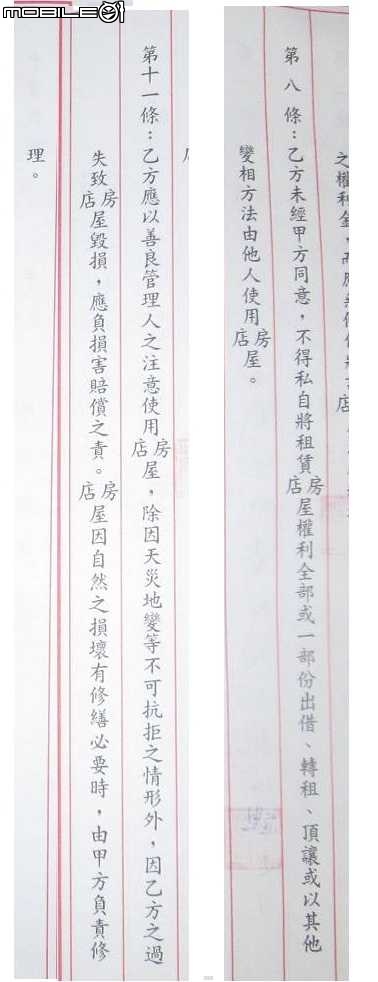 MOBILE01
之權利金,
第八條：乙方未經甲方同意，不得私自將租賃房店屋權利全部或一部份出借、轉租、頂讓或以其他
變相方法由他人使用房店屋。
第十一條：乙方應以善良管理人之注意使用房店屋，除因天災地變等不可抗拒之情形外，因乙方之過
失致房店屋毀損，應負損害賠償之責。房店屋因自然之損壞有修繕必要時，由甲方負責修
理。